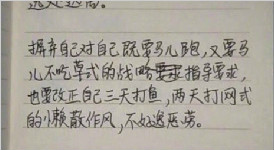 摒弃自己对自己既要马儿跑，又要马
儿不吃草式的战略指导要求，
也要改正自己三天打鱼，两天打网式
的小懒散作风，不好逸恶劳。